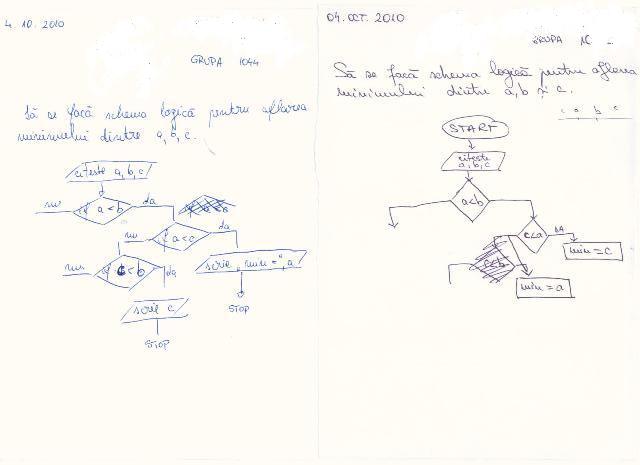 4. 10. 2010
GRUPA 1044
Să se facă schema logică pentru aflarea
minimului dintre a, b, c.
citeste a, b, c
nu
if a<b
da
if a<c
da
nu
if c<b
da
scrie „min =", a
STOP
scrie c
STOP
04. OCT. 2010
GRUPA
Să se facă schema logică pentru aflarea
minimului dintre a, b și c.
START
citește
a, b, c
a<b
c<a
DA
min = c
min = a